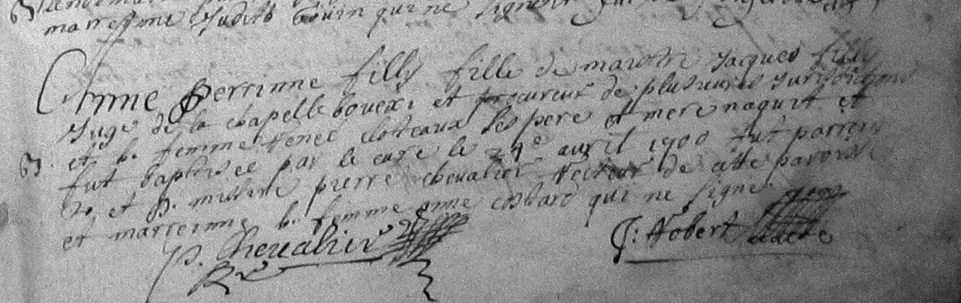 marenne Judith Gouin qui ne signent
Anne Perrinne fills fille de maistre Jacques fills
Juge de la chapelle bouexi et procureur de plusieurs Jurisdictions
B. et h. femme renee clotteaux ses pere et mere naquit et
fut baptisee par le cure le 24e avril 1700 fut parrein
v. et d. missire pierre chevalier Recteur de cette paroisse
et marreinne h. femme anne costard qui ne signe
P. Chevalier J: Robert
Rr curé